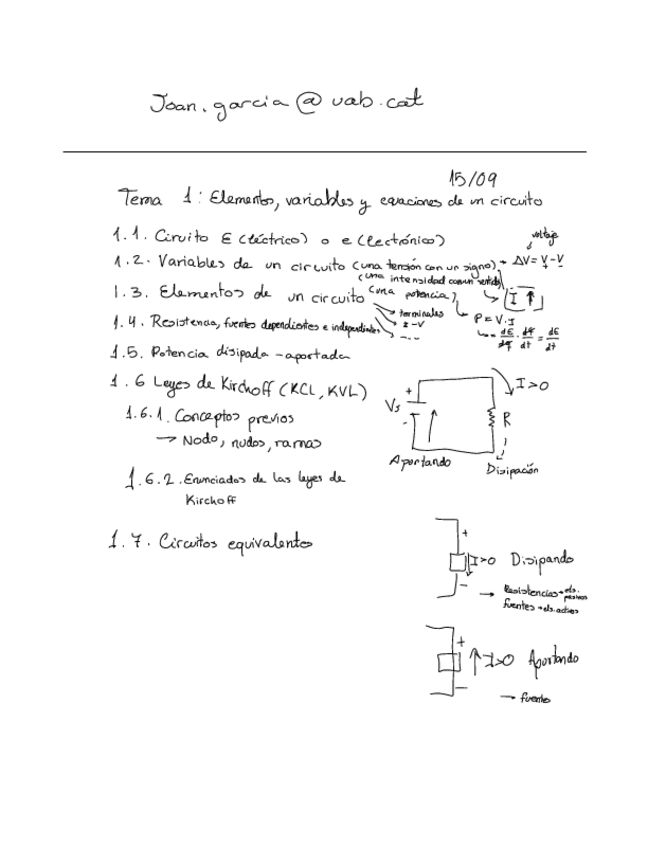 Joan.garcia@uab.cat
15/09
Tema 1: Elementos, variables y equaciones de un circuito
1.1. Ciruito E(léctrico) o e(lectrónico)
voltaje
1.2. Variables de un circuito (una tensión con un signo) → ΔV = V - V
(una intensidad con un sentido)
(una potencia)
I ↑
1.3. Elementos de un circuito
→ terminales
→ I-V
→ ...
P = V·I
dE/dq · dq/dt = dE/dt
1.4. Resistencia, fuentes dependientes e independientes
1.5. Potencia disipada - aportada
1.6 Leyes de Kirchoff (KCL, KVL)
1.6.1. Conceptos previos
→ Nodo, nudos, ramas
1.6.2. Enunciados de las leyes de
Kirchoff
Vs
+
-
I>0
R
Aportando
Disipación
1.7. Circuitos equivalentes
+
I>0 Disipando
-
→ Resistencias → els. pasivos
fuentes → els. activos
+
↑ I>0 Aportando
-
→ fuente